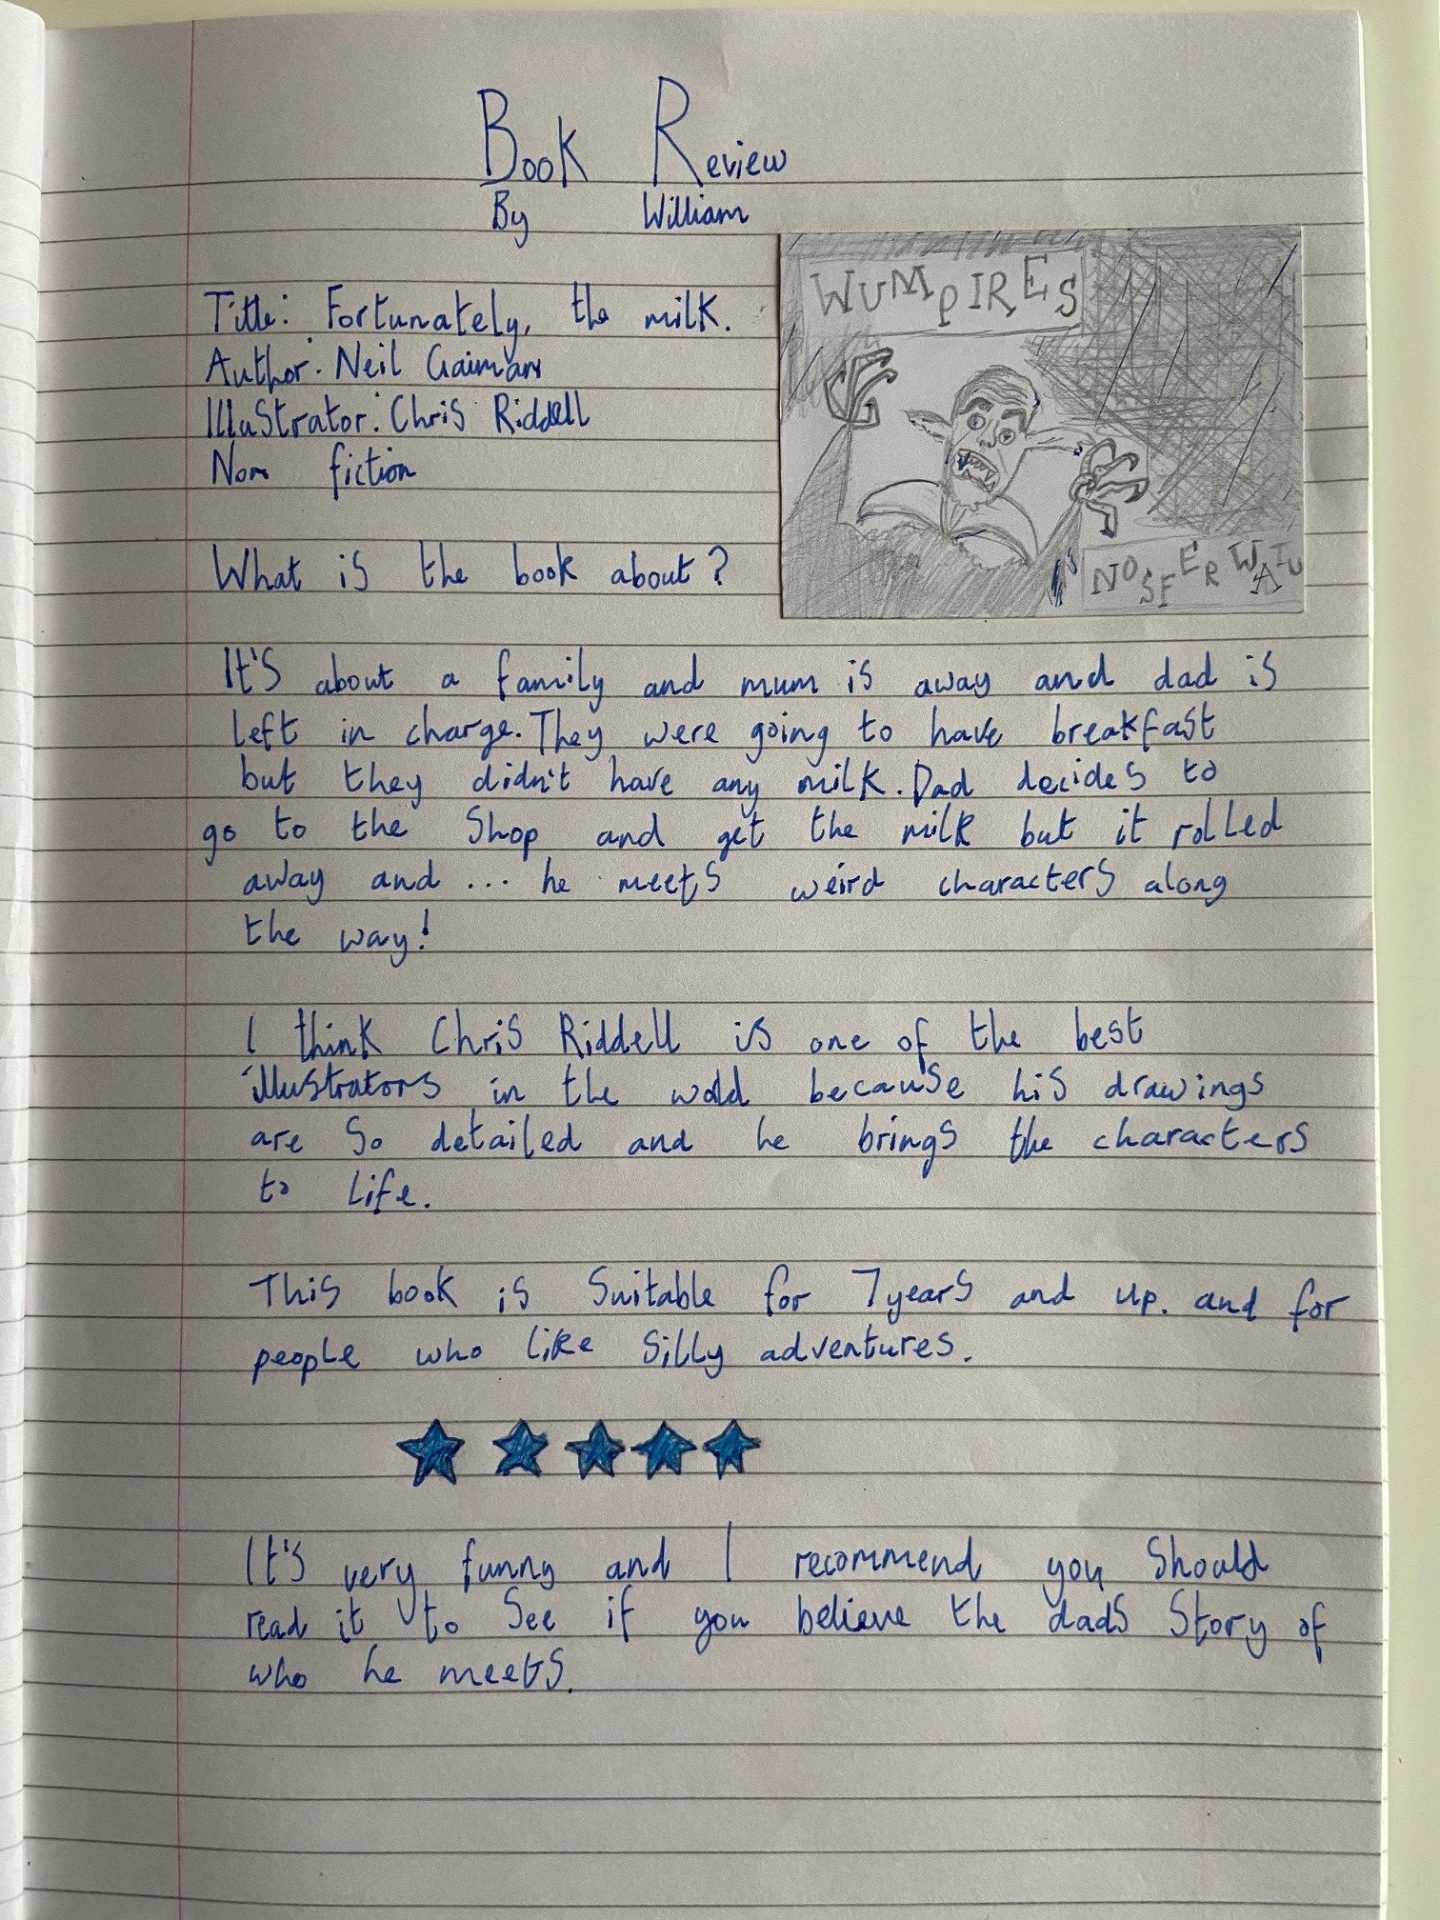 Book Review
By William
WUMPIRES
NOSFERWATU
Title: Fortunately, the milk.
Author: Neil Gaiman
Illustrator: Chris Riddell
Non fiction
What is the book about?
It's about a family and mum is away and dad is
left in charge. They were going to have breakfast
but they didn't have any milk. Dad decides to
go to the shop and get the milk but it rolled
away and ... he meets weird characters along
the way!
I think Chris Riddell is one of the best
illustrators in the wold because his drawings
are so detailed and he brings the characters
to life.
This book is suitable for 7 years and up. and for
people who like silly adventures.
It's very funny and I recommend you should
read it to see if you believe the dads story of
who he meets.